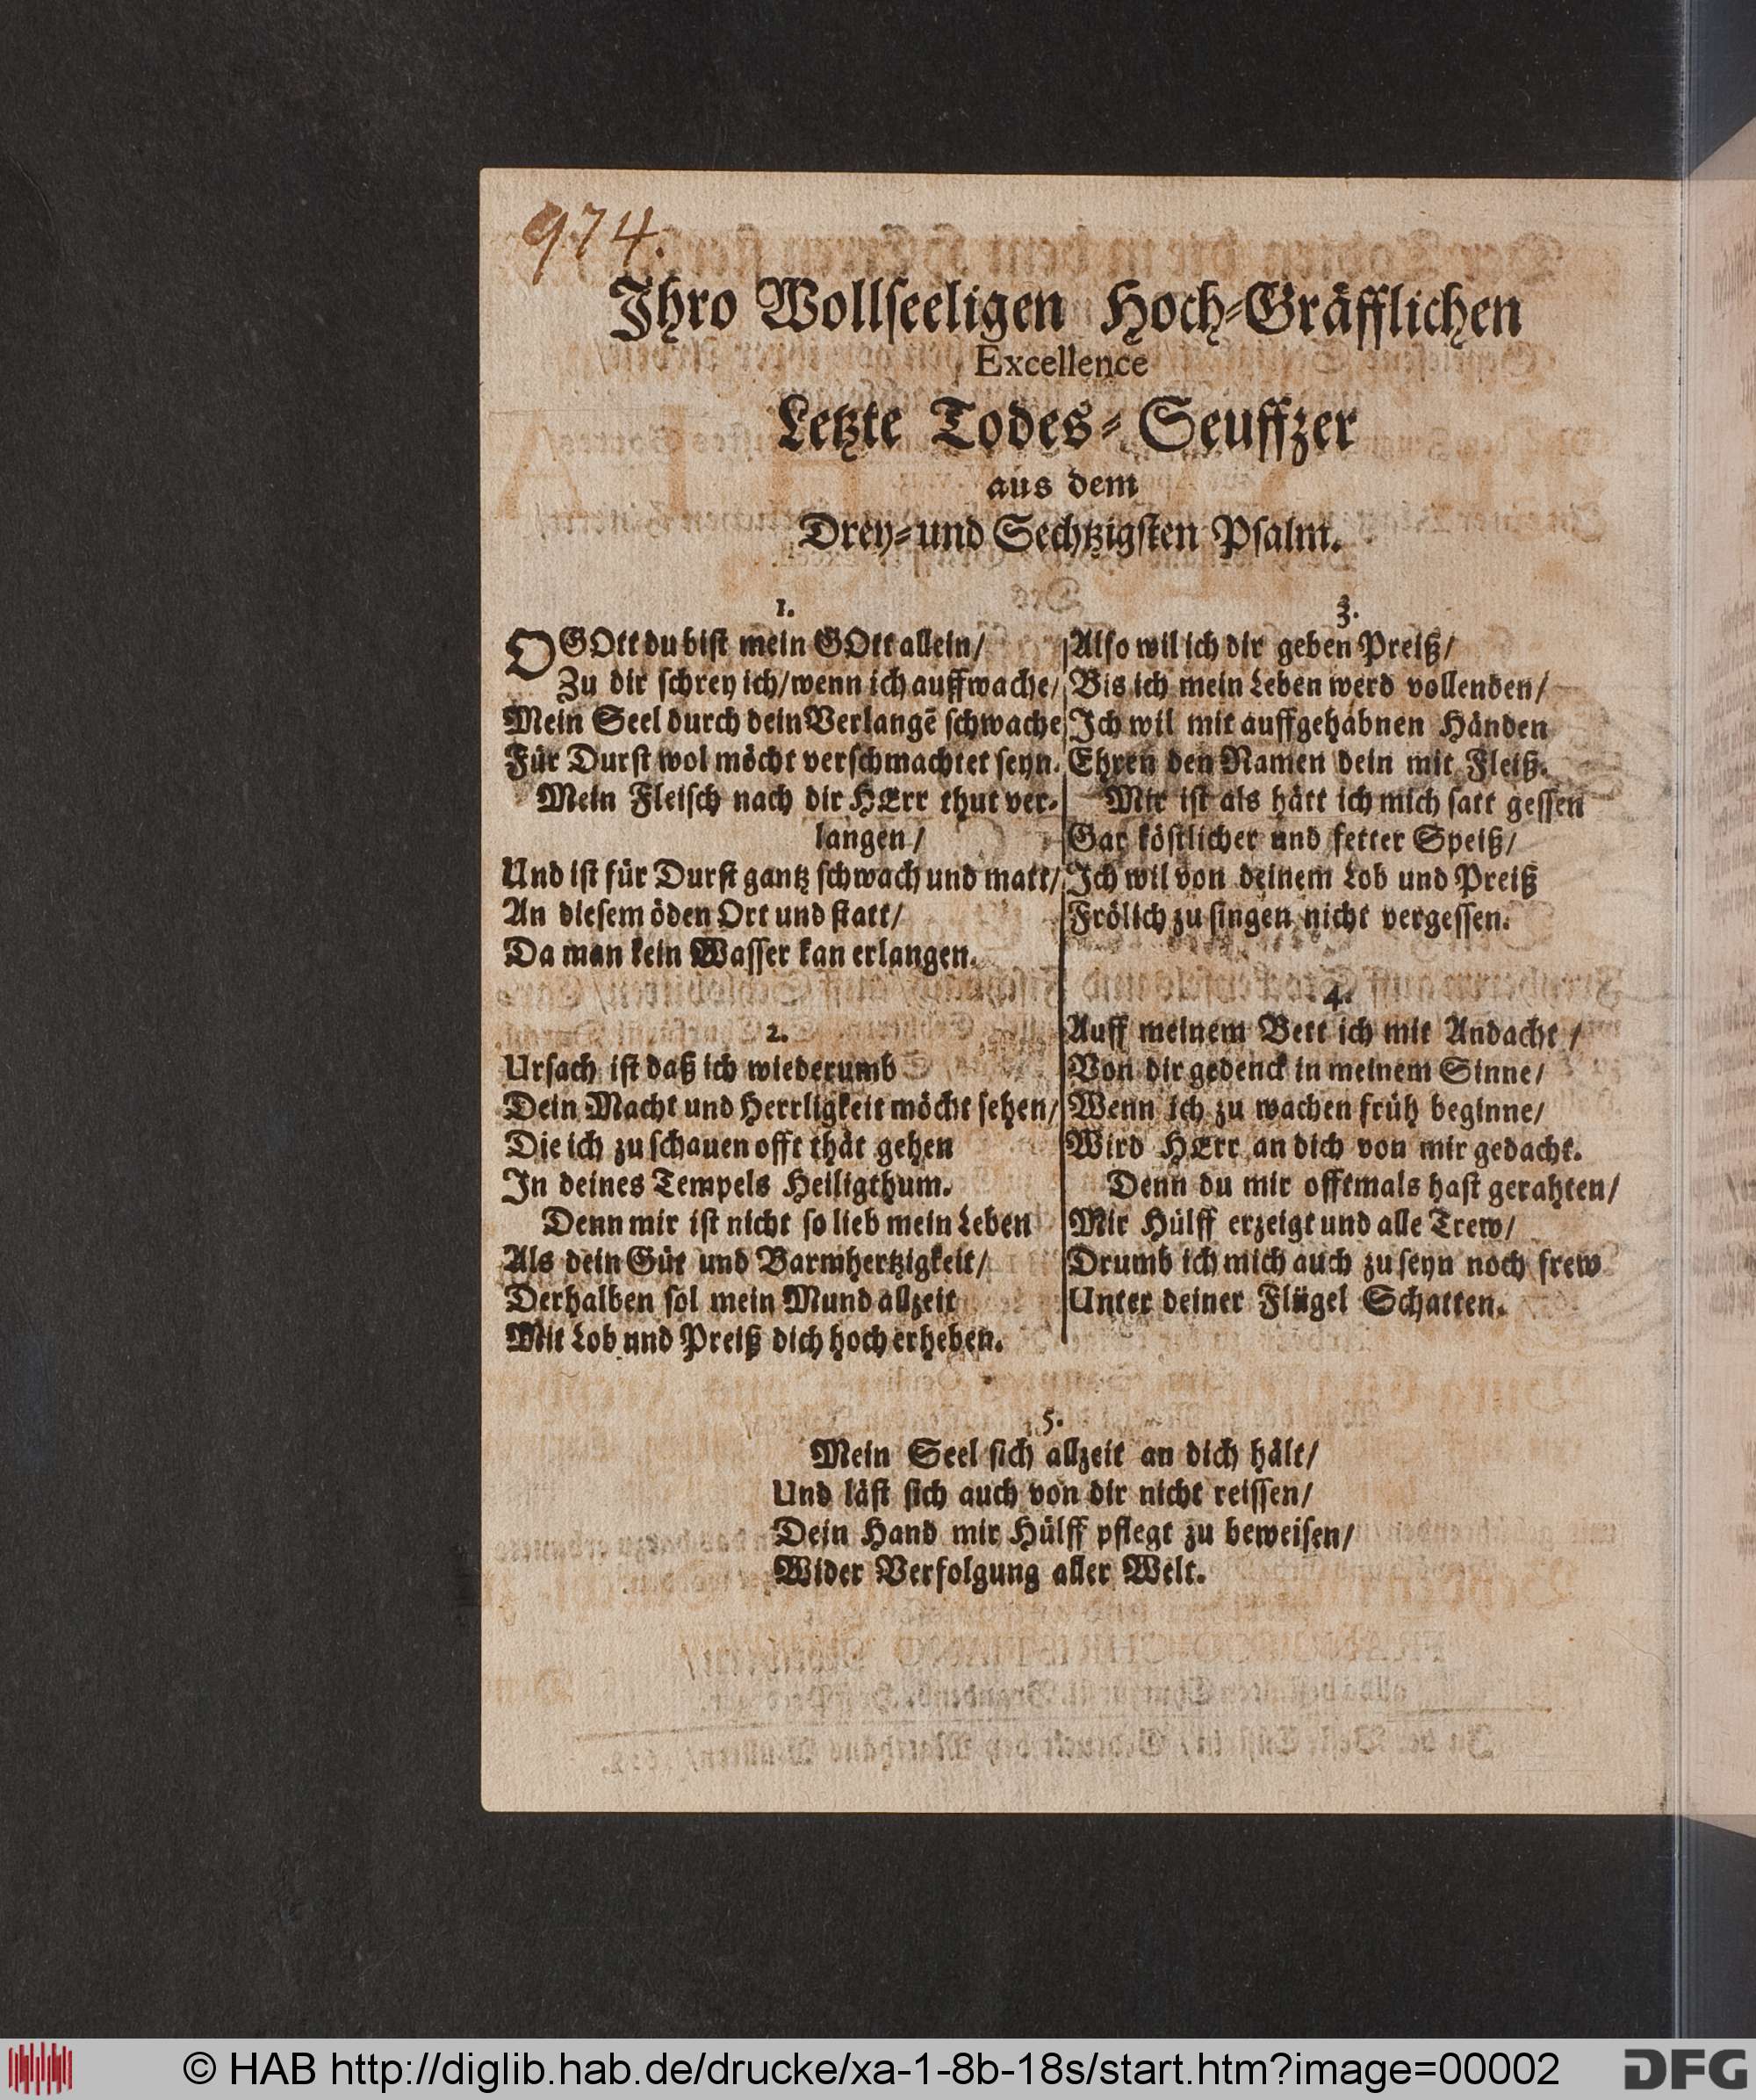 974.
Ihro Wollseeligen Hoch-Gräfflichen
Excellence
Letzte Todes-Seuffzer
aus dem
Drey-und Sechtzigsten Psalm.
1.
O GOtt du bist mein GOtt allein/
Zu dir schrey ich/wenn ich auffwache/
Mein Seel durch dein Verlangẽ schwache
Für Durst wol möcht verschmachtet seyn.
Mein Fleisch nach dir HErr thut ver-
langen/
Und ist für Durst gantz schwach und matt/
An diesem öden Ort und statt/
Da man kein Wasser kan erlangen.
2.
Ursach ist daß ich wiederumb
Dein Macht und Herrligkeit möcht sehen/
Die ich zu schauen offt thät gehen
In deines Tempels Heiligthum.
Denn mir ist nicht so lieb mein Leben
Als dein Güt und Barmhertzigkeit/
Derhalben sol mein Mund allzeit
Mit Lob und Preiß dich hoch erheben.
3.
Also wil ich dir geben Preiß/
Bis ich mein Leben werd vollenden/
Ich wil mit auffgehabnen Händen
Ehren den Namen dein mit Fleiß.
Mir ist als hätt ich mich satt gessen
Gar köstlicher und fetter Speiß/
Ich wil von deinem Lob und Preiß
Frölich zu singen nicht vergessen.
4.
Auff meinem Bett ich mit Andacht /
Von dir gedenck in meinem Sinne/
Wenn ich zu wachen früh beginne/
Wird HErr an dich von mir gedacht.
Denn du mir offtmals hast gerahten/
Mir Hülff erzeigt und alle Trew/
Drumb ich mich auch zu seyn noch frew
Unter deiner Flügel Schatten.
5.
Mein Seel sich allzeit an dich hält/
Und läst sich auch von dir nicht reissen/
Dein Hand mir Hülff pflegt zu beweisen/
Wider Verfolgung aller Welt.
© HAB http://diglib.hab.de/drucke/xa-1-8b-18s/start.htm?image=00002
DFG